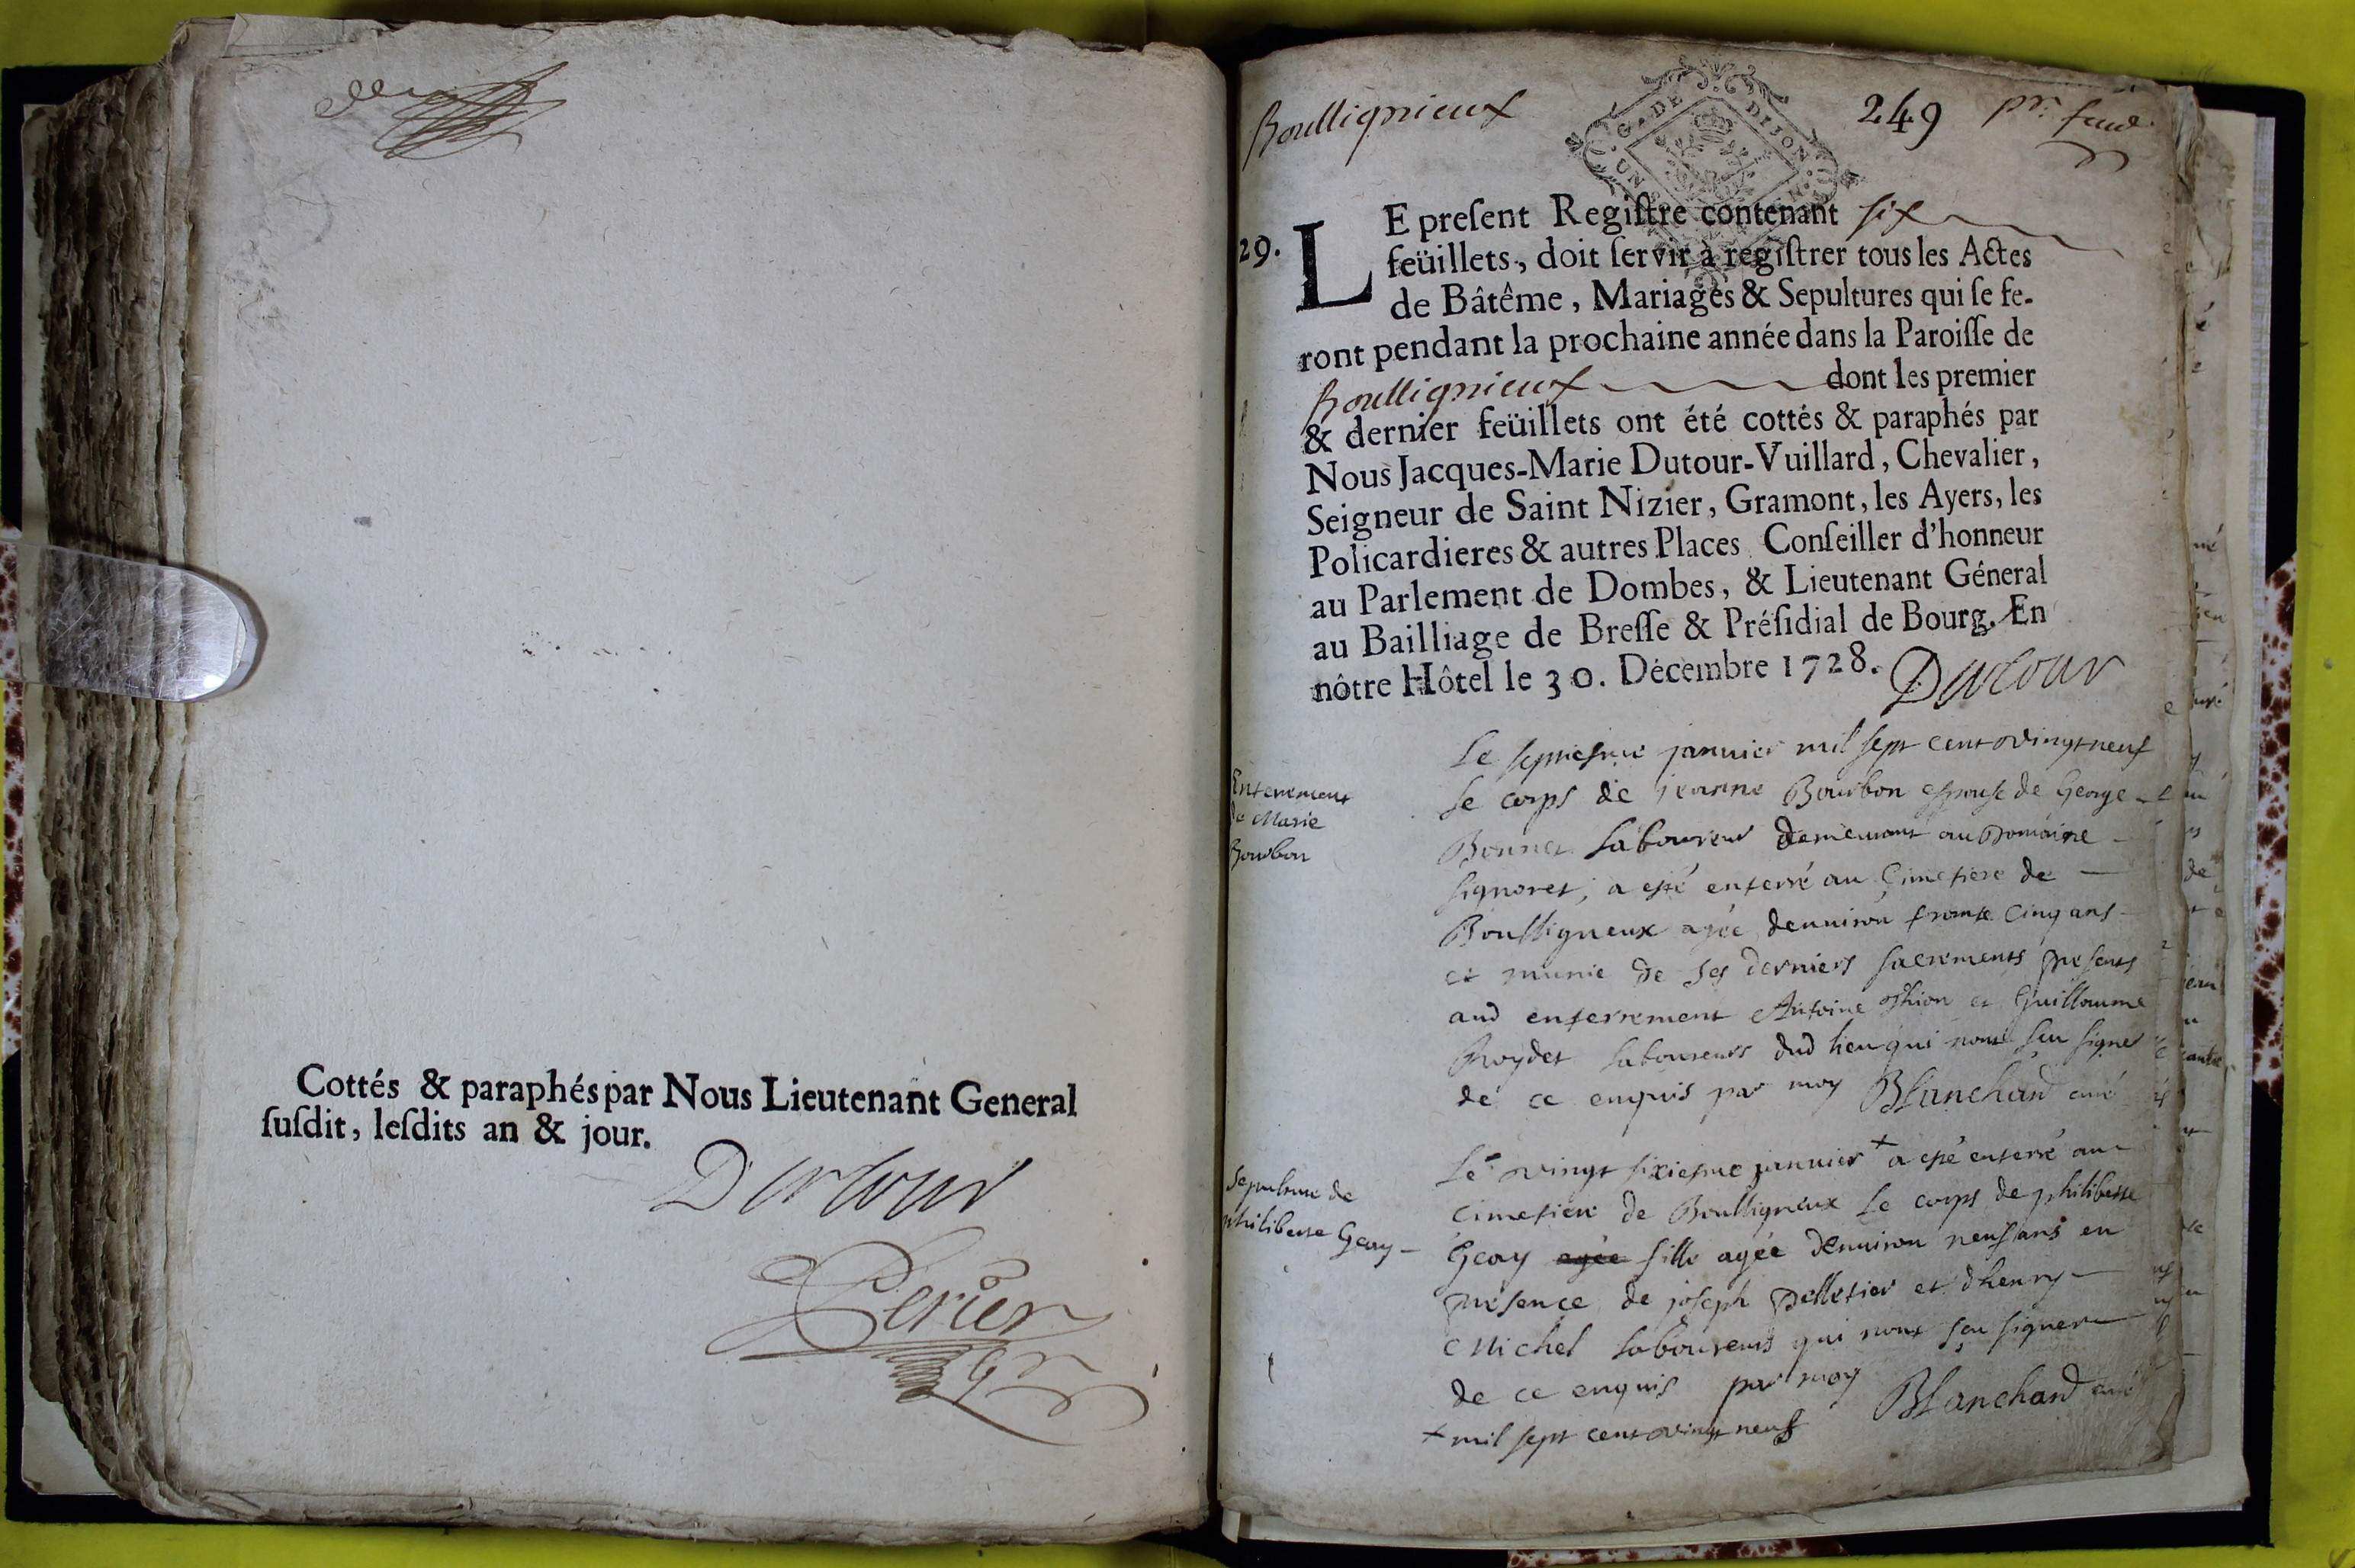 Cottés & paraphés par Nous Lieutenant General
suſdit, leſdits an & jour.
Dutour
Perier
Boullignieux
249
pr. feuil.
G. DE DIJON
29.
LE preſent Regiſtre contenant six
feüillets, doit ſervir à regiſtrer tous les Actes
de Bâtême, Mariages & Sepultures qui ſe fe-
ront pendant la prochaine année dans la Paroiſſe de
Boullignieux dont les premier
& dernier feüillets ont été cottés & paraphés par
Nous Jacques-Marie Dutour-Vuillard, Chevalier,
Seigneur de Saint Nizier, Gramont, les Ayers, les
Policardieres & autres Places Conſeiller d'honneur
au Parlement de Dombes, & Lieutenant Géneral
au Bailliage de Breſſe & Préſidial de Bourg. En
nôtre Hôtel le 30. Décembre 1728.
Dutour
Enterement
de Marie
Bourbon
Le septiesme januier mil sept cent vingt neuf
le corps de jeanne Bourbon espouse de George
Bonnet laboureur demeurant au Domaine
signoret, a esté enterré au Cimetiere de
Boulligneux agée denuiron trante cinq ans
et munie de ses derniers sacrements presents
aud enterrement Antoine et Guillaume
Roydet laboureurs dud lieu qui nont sceu signer
de ce enquis par moy Blanchard curé
Sepulture de
philiberte Geay
Le vingt sixiesme januier + a esté enterré au
Cimetiere de Boulligneux le corps de philiberte
Geay agée fille agée denuiron neuf ans en
presence de joseph pelletier et dhenry
Michel laboureurs qui nont sçeu signer
de ce enquis par moy Blanchard curé
+ mil sept cent vingt neuf